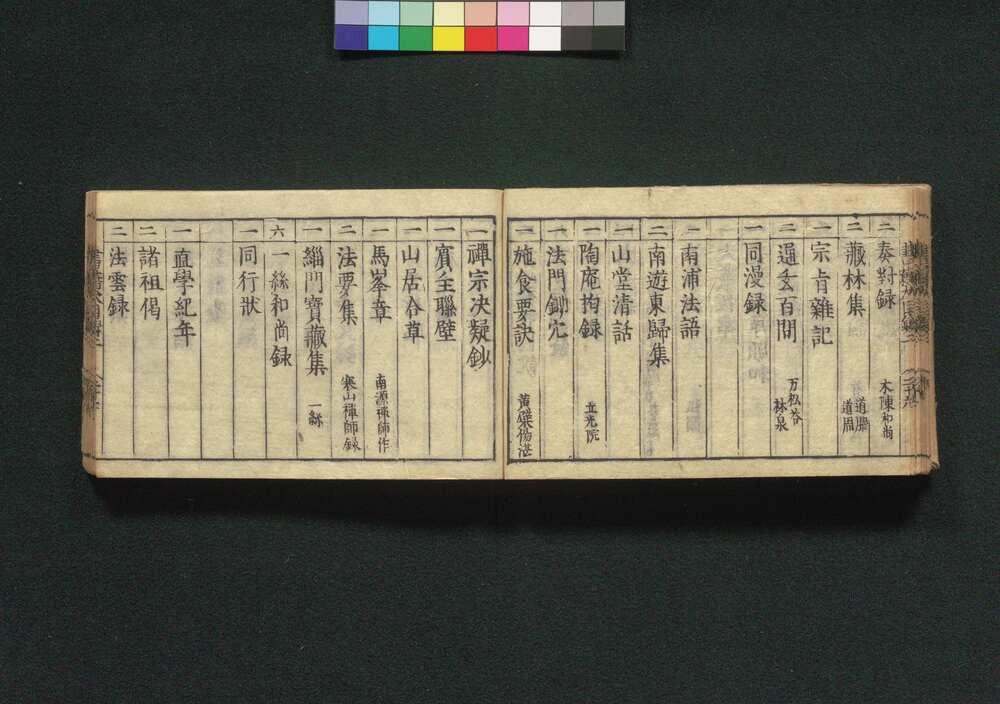 二 奏對録 木陳和尚
二 蔵林集 道
一 宗㫖雜記
二 通玄百問 万松答 林泉
一 同漫録
一 南浦法語
二 南遊東歸集
一 山堂清話
一 陶庵拘録 立光院
一 法門鋤宄
一 施食要訣 黄檗楊湛
一 禪宗决疑鈔
一 賓主聯壁
一 山居合草
一 馬峯章 南源禅師作
二 法要集 寒山禅師録
一 緇門寶蔵集 一絲
六 一絲和尚録
一 同行狀
一 直學紀年
二 諸祖偈
二 法雲録